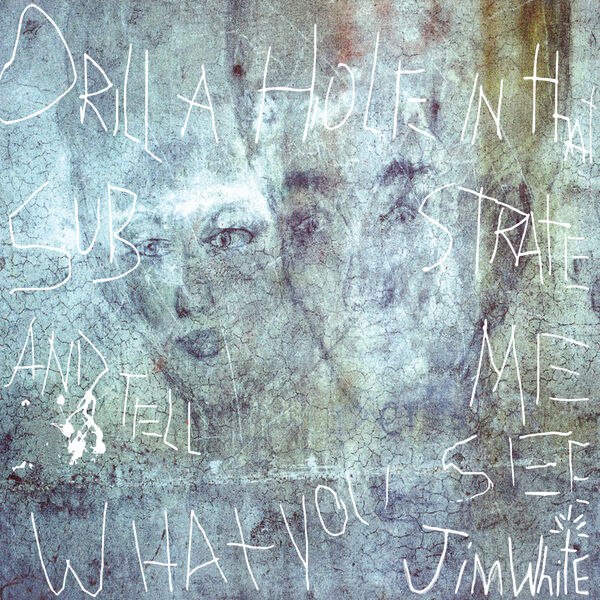 DRILL A HOLE IN tHAt
SUB STRATE
AND TELL ME
WHAt YOU SEE
Jim WHitE